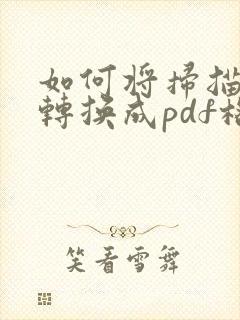 如何將掃描
轉換成pdf格
笑看雪舞